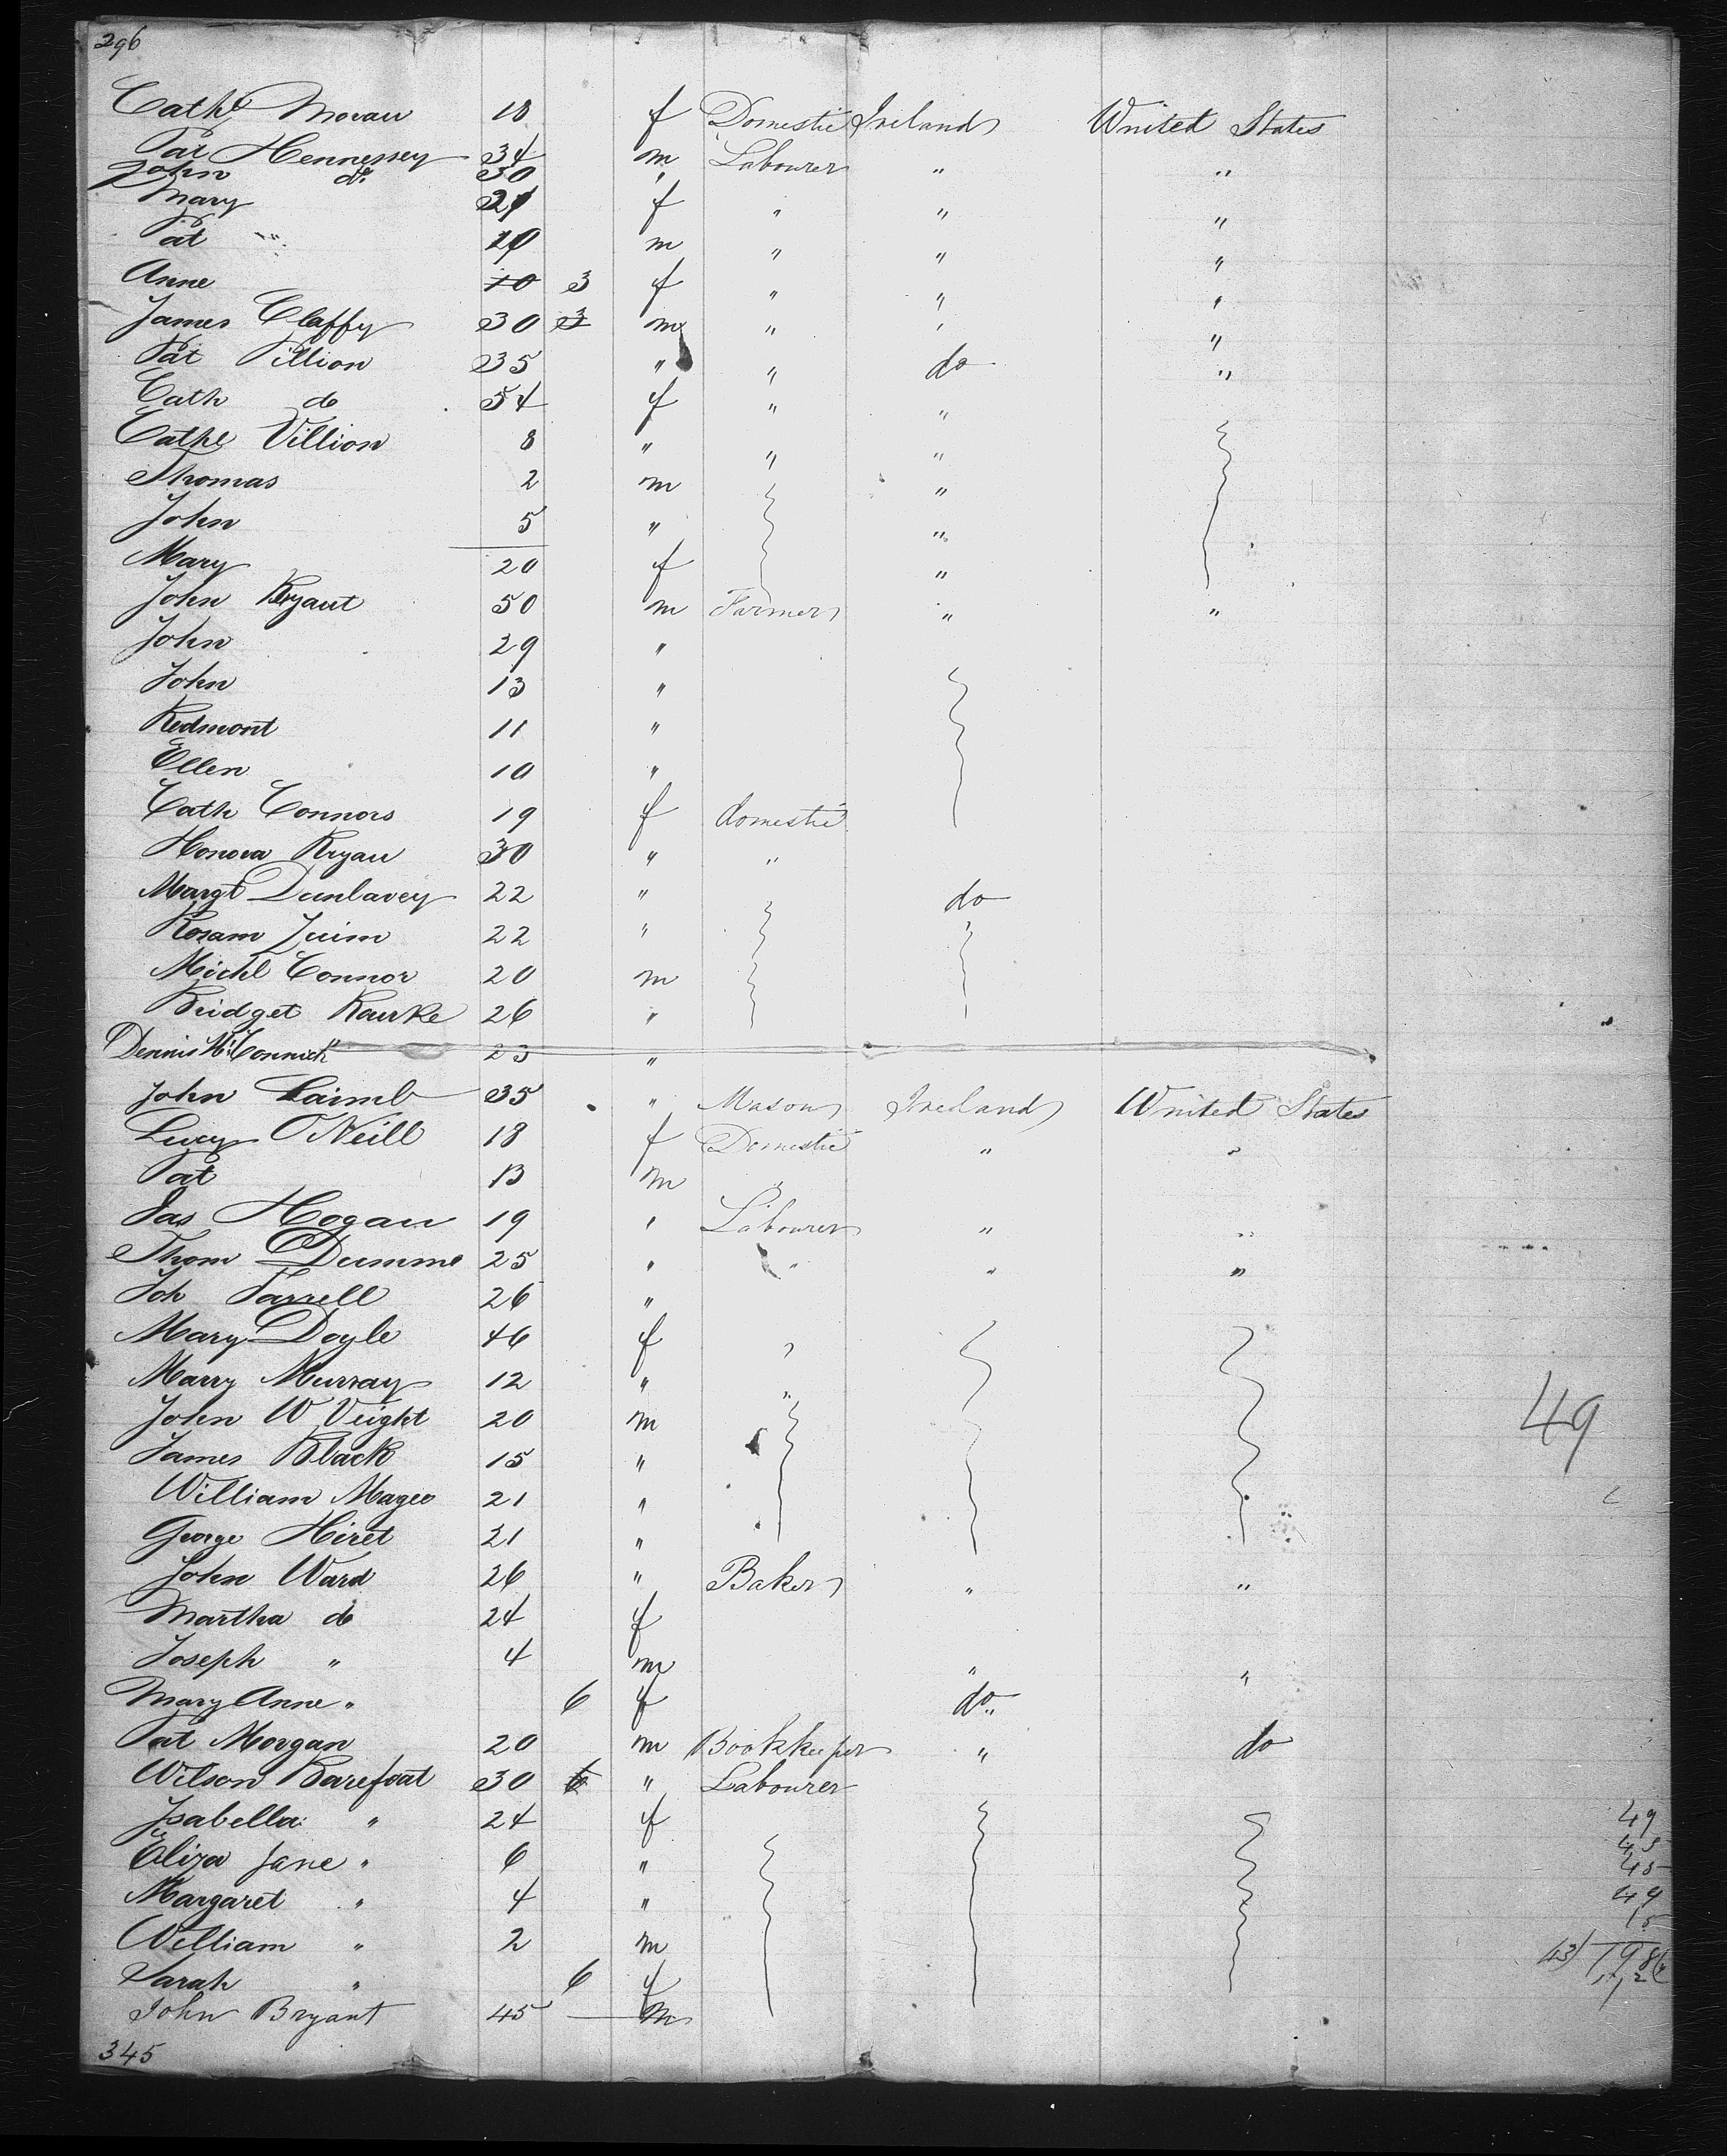 296
Cathe Moran 18 f Domestic Ireland United States
Pat Hennessey 34 m Labourer " "
John do 30 "
Mary 21 f " " "
Pat " 10 m " " "
Anne 10 3 f " " "
James Claffy 30 3 m " " "
Pat Pillion 35 " " do "
Cath do 54 f " "
Cathe Villion 8 " " "
Thomas 2 m "
John 5 " "
Mary 20 f "
John Bryant 50 m Farmer " "
John 29 "
John 13 "
Redmont 11 "
Ellen 10 "
Cath Connors 19 f domestic
Honora Ryan 30 " "
Margt Dunlavey 22 " do
Rosam 22 "
Michl Connor 20 m
Bridget Rourke 26 "
Dennis McConnick 23 "
John 35 " Mason Ireland United States
Lucy O'Neill 18 f Domestic " "
Pat 13 m "
Jas Hogan 19 " Labourer " "
Thom Dumme 25 " " " "
Joh Farrell 26 "
Mary Doyle 46 f "
Marry Murray 12 " "
John W Veight 20 m
James Black 15 "
William Magee 21 "
George Hiret 21 "
John Ward 26 " Baker " "
Martha do 24 f
Joseph " 4 m " "
Mary Anne " 6 f do
Pat Morgan 20 m Bookkeeper " do
Wilson Barefoat 30 6 " Labourer
Isabella " 24 f
Eliza Jane " 6 "
Margaret " 4 "
William " 2 m
Sarah " 6 f
John Bryant 45 m
345
49
49
43
45
49
15